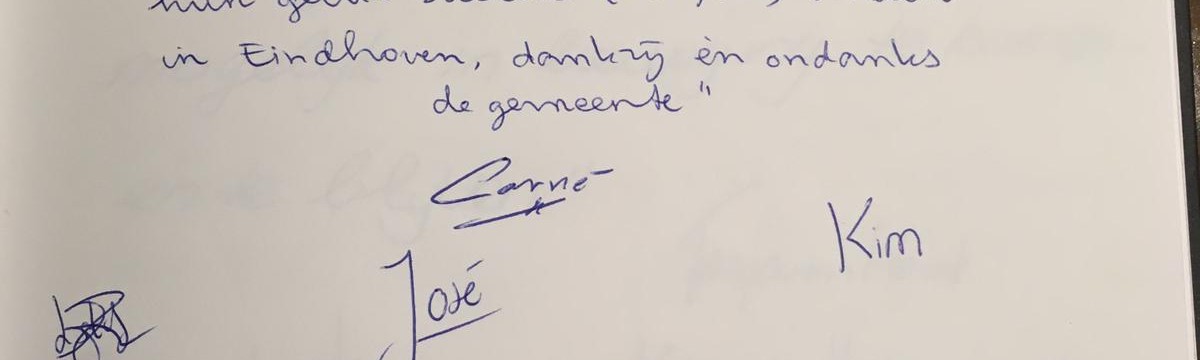 hun
in Eindhoven, dankzij èn ondanks
de gemeente"
Carné
Kim
José